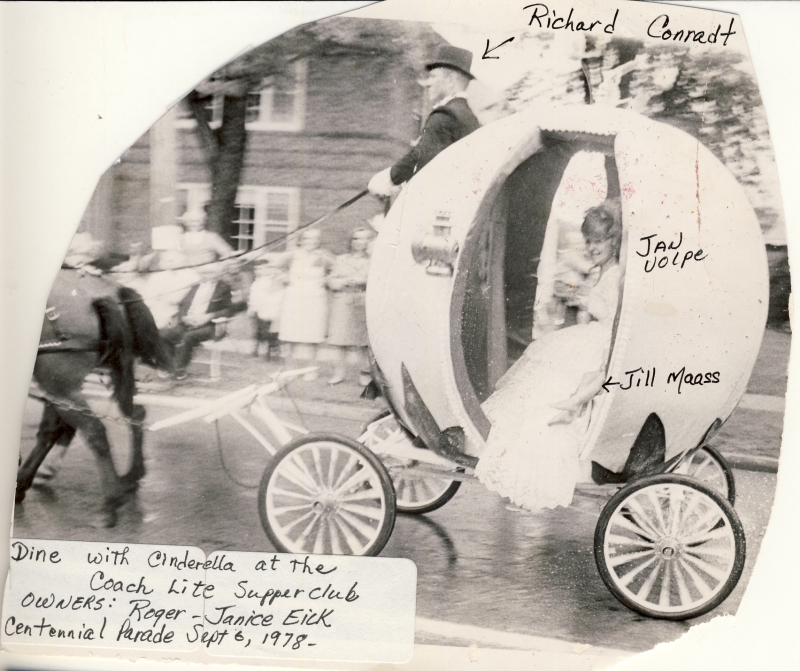 Richard Conradt
JAN
VOLPE
Jill Maass
Dine with Cinderella at the
Coach Lite Supperclub
OWNERS: Roger - Janice Eick
Centennial Parade Sept 6, 1978-